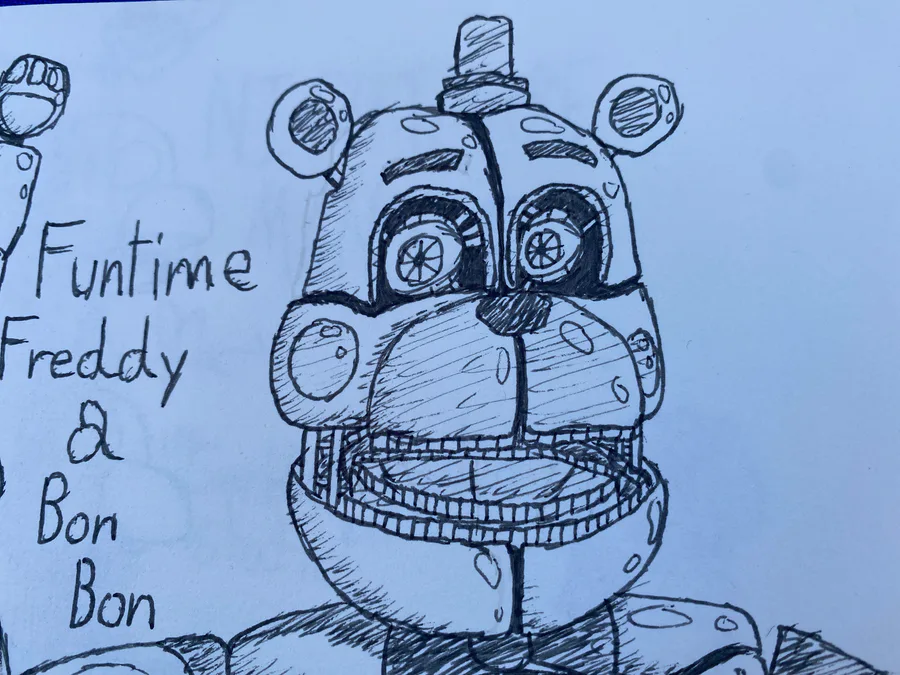 Funtime
Freddy
&
Bon
Bon